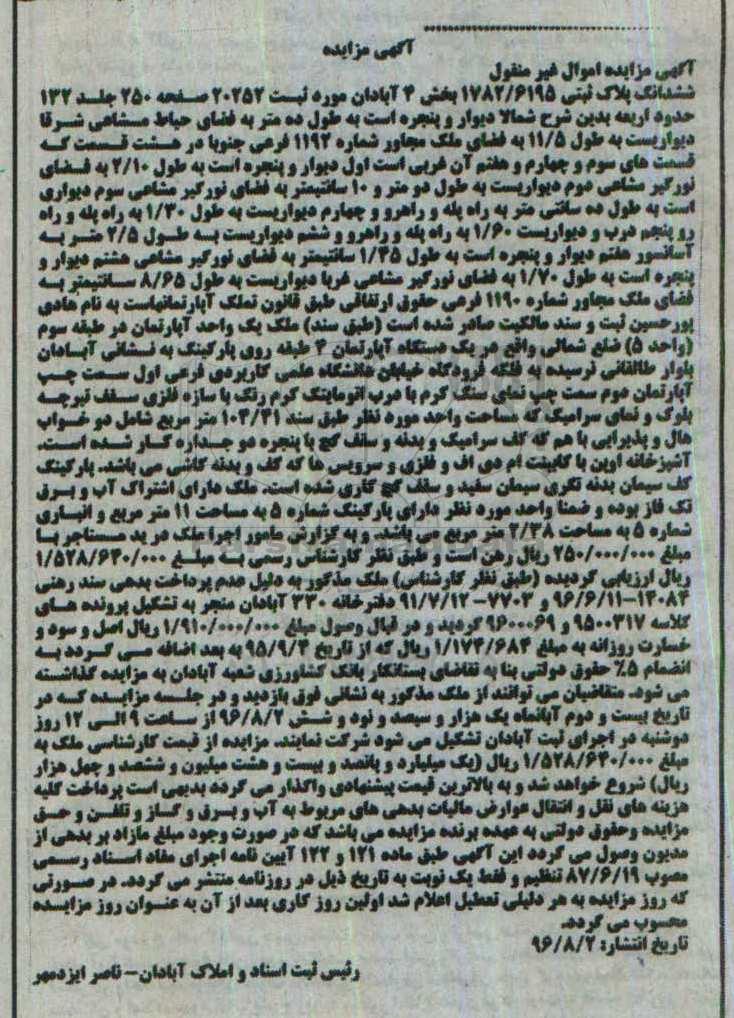 آگهی مزایده
آگهی مزایده اموال غیر منقول
ششدانگ پلاک ثبتی ۱۷۸۲/۶۱۹۵ بخش ۴ آبادان مورد ثبت ۲۰۲۵۲ صفحه ۲۵۰ جلد ۱۳۲
حدود اربعه بدین شرح شمالا دیوار و پنجره است به طول ده متر به فضای حیاط مشاعی شرقا
دیواریست به طول ۱۱/۵ به فضای ملک مجاور شماره ۱۱۹۲ فرعی جنوبا در هشت قسمت که
قسمت های سوم و چهارم و هفتم آن غربی است اول دیوار و پنجره است به طول ۲/۱۰ به فضای
نورگیر مشاعی دوم دیواریست به طول دو متر و ۱۰ سانتیمتر به فضای نورگیر مشاعی سوم دیواری
است به طول ده سانتی متر به راه پله و راهرو و چهارم دیواریست به طول ۱/۳۰ به راه پله و راه
رو پنجم درب و دیواریست ۱/۶۰ به راه پله و راهرو و ششم دیواریست به طول ۲/۵ متر به
آسانسور هفتم دیوار و پنجره است به طول ۱/۴۵ سانتیمتر به فضای نورگیر مشاعی هشتم دیوار و
پنجره است به طول ۱/۷۰ به فضای نورگیر مشاعی غربا دیواریست به طول ۸/۶۵ سانتیمتر به
فضای ملک مجاور شماره ۱۱۹۰ فرعی حقوق ارتفاقی طبق قانون تملک آپارتمانهاست به نام هادی
پورحسین ثبت و سند مالکیت صادر شده است (طبق سند) ملک یک واحد آپارتمان در طبقه سوم
(واحد ۵) ضلع شمالی واقع در یک دستگاه آپارتمان ۴ طبقه روی پارکینگ به نشانی آبادان
بلوار طالقانی نرسیده به فلکه فرودگاه خیابان دانشگاه علمی کاربردی فرعی اول سمت چپ
آپارتمان دوم سمت چپ نمای سنگ کرم با درب اتوماتیک کرم رنگ با سازه فلزی سقف تیرچه
بلوک و نمای سرامیک که مساحت واحد مورد نظر طبق سند ۱۰۴/۳۱ متر مربع شامل دو خواب
هال و پذیرایی با هم که کف سرامیک و بدنه و سقف گچ با پنجره دو جداره کار شده است.
آشپزخانه اوپن با کابینت ام دی اف و فلزی و سرویس ها که کف و بدنه کاشی می باشد. پارکینگ
کف سیمان بدنه تگری سیمان سفید و سقف گچ کاری شده است. ملک دارای اشتراک آب و برق
تک فاز بوده و ضمنا واحد مورد نظر دارای پارکینگ شماره ۵ به مساحت ۱۱ متر مربع و انباری
شماره ۵ به مساحت ۲/۳۸ متر مربع می باشد. و به گزارش مامور اجرا ملک در ید مستاجر با
مبلغ ۲۵۰/۰۰۰/۰۰۰ ریال رهن است و طبق نظر کارشناس رسمی به مبلغ ۱/۵۲۸/۶۴۰/۰۰۰
ریال ارزیابی گردیده (طبق نظر کارشناس) ملک مذکور به دلیل عدم پرداخت بدهی سند رهنی
۱۴۰۸۴-۹۶/۶/۱۱ و ۷۷۰۳-۹۱/۷/۱۲ دفترخانه ۳۳۰ آبادان منجر به تشکیل پرونده های
کلاسه ۹۵۰۰۳۱۷ و ۹۶۰۰۰۶۹ گردید و در قبال وصول مبلغ ۱/۹۱۰/۰۰۰/۰۰۰ ریال اصل و سود و
خسارت روزانه به مبلغ ۱/۱۷۴/۶۸۴ ریال که از تاریخ ۹۵/۹/۴ به بعد اضافه می گردد به
انضمام ۵٪ حقوق دولتی بنا به تقاضای بستانکار بانک کشاورزی شعبه آبادان به مزایده گذاشته
می شود. متقاضیان می توانند از ملک مذکور به نشانی فوق بازدید و در جلسه مزایده که در
تاریخ بیست و دوم آبانماه یک هزار و سیصد و نود و شش ۹۶/۸/۲ از ساعت ۹ الی ۱۲ روز
دوشنبه در اجرای ثبت آبادان تشکیل می شود شرکت نمایند. مزایده از قیمت کارشناسی ملک به
مبلغ ۱/۵۲۸/۶۴۰/۰۰۰ ریال (یک میلیارد و پانصد و بیست و هشت میلیون و ششصد و چهل هزار
ریال) شروع خواهد شد و به بالاترین قیمت پیشنهادی واگذار می گردد بدیهی است پرداخت کلیه
هزینه های نقل و انتقال عوارض مالیات بدهی های مربوط به آب و برق و گاز و تلفن و حق
مزایده وحقوق دولتی به عهده برنده مزایده می باشد که در صورت وجود مبلغ مازاد بر بدهی از
مدیون وصول می گردد این آگهی طبق ماده ۱۲۱ و ۱۲۲ آیین نامه اجرای مفاد اسناد رسمی
مصوب ۸۷/۶/۱۹ تنظیم و فقط یک نوبت به تاریخ ذیل در روزنامه منتشر می گردد. در صورتی
که روز مزایده به هر دلیلی تعطیل اعلام شد اولین روز کاری بعد از آن به عنوان روز مزایده
محسوب می گردد.
تاریخ انتشار: ۹۶/۸/۲
رئیس ثبت اسناد و املاک آبادان - ناصر ایزدمهر